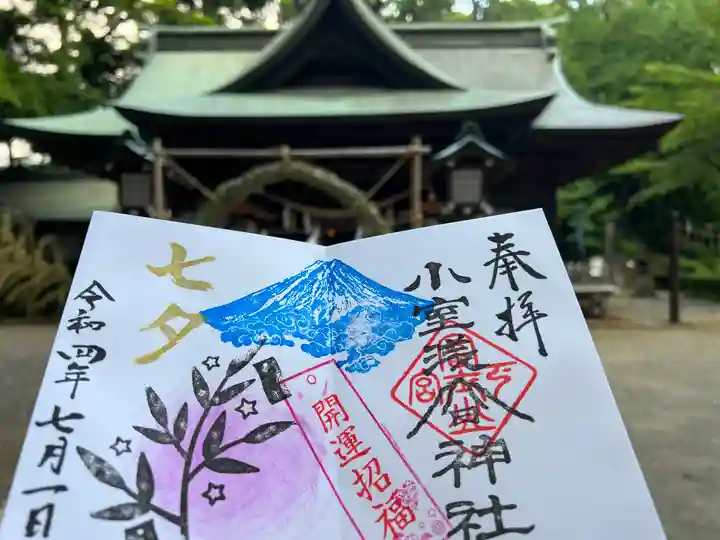 奉拝
小室浅间神社
開運招福
七夕
令和四年七月一日